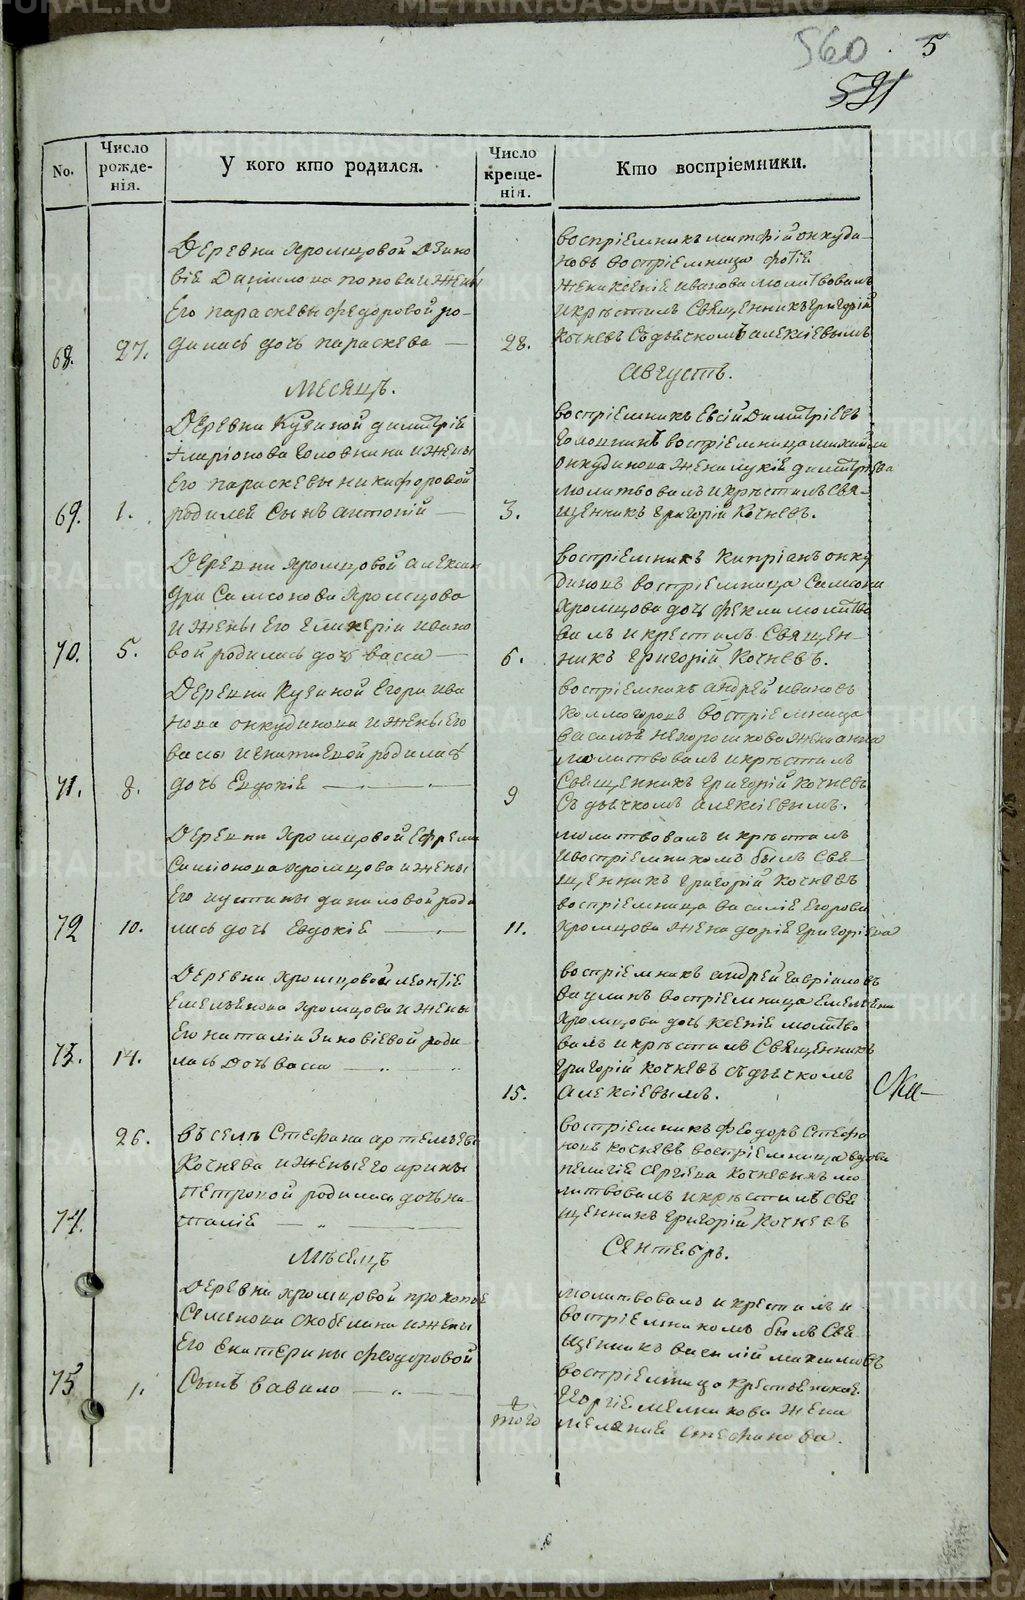 560 . 5
591
No.
Число рожде-нія.
У кого кто родился.
Число креще-нія.
Кто воспріемники.
Деревни Хромцовой Зино
вія Данилова Попова и жены
Его параскевы Феодоровой ро-
68. 27. дилась дочь параскева —
28.
воспріемникъ онкуди-
новъ воспріемница
жена Ксенія иванова молитвовалъ
и крѣстилъ Священникъ григорій
Кочневъ съ дьячкомъ алексіевымъ
Месяцъ.
Августъ.
Деревни Кузиной димитрія
Иларіонова Головнина и жены
Его параскевы никифоровой
69. 1. родился Сынъ антоній —
3.
воспріемникъ Евсій Димитріевъ
воспріемница
онкудинова жена димитріева
молитвовалъ и крѣстилъ Свя-
щенникъ григорій Кочневъ.
Деревни Хромцовой алексан
дра Самсонова Хромцова
и жены Его гликеріи ивано
70. 5. вой родилась дочь васса —
6.
воспріемникъ Кипріанъ онку
диновъ воспріемница
Хромцова дочь Фекла молитво
валъ и крестилъ Священ-
никъ григорій Кочневъ.
Деревни Кузиной Егора ива
нова онкудинова и жены Его
вассы игнатьевой родилась
71. 8. дочь Евдокія —
9
воспріемникъ андрей ивановъ
воспріемница
василья нехорошкова жена анна
молитвовалъ и крѣстилъ
Священникъ григорій Кочневъ
Съ дьячкомъ алексіевымъ.
Деревни Хромцовой Ефрема
Самсонова Хромцова и жены
Его иустины даниловой роди
72 10. лась дочь Евдокія —
11.
молитвовалъ и крѣстилъ
и воспріемникомъ былъ Свя-
щенникъ григорій Кочневъ
воспріемница василія Егорова
Хромцова жена дарія григоріева
Деревни Хромцовой леонтія
Емельянова Хромцова и жены
Его наталіи Зиновіевой роди-
73. 14. лась дочь васса —
15.
воспріемникъ андрей гавріиловъ
ваулинъ воспріемница Емельяна
Хромцова дочь Ксенія молитво
валъ и крѣстилъ Священникъ
григорій Кочневъ съ дьячкомъ
алексіевымъ.
26. въ селѣ Стефана артемьева
Кочнева и жены Его ирины
Петровой родилась дочь на-
74. талія —
воспріемникъ Феодоръ Стефа
новъ Кочневъ воспріемница вдова
пелагія Сергеева Кочневыхъ мо
литвовалъ и крѣстилъ Свя
щенникъ григорій Кочневъ
Мѣсяцъ
Сентябрь.
Деревни Хромцовой прокопья
Семенова Скобелина и жены
Его Екатерины Феодоровой
75 1. Сынъ вавило —
того
молитвовалъ и крестилъ и
воспріемникомъ былъ Свя-
щенникъ василій
воспріемница
георгія мелникова жена
меланія Стефанова.